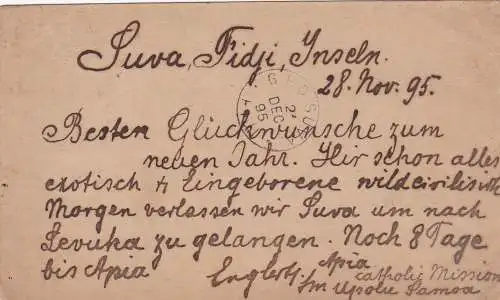 Suva, Fidji, Inseln.
28. Nov. 95.
G.P.O. SUVA
DEC 2
95
Besten Glückwünsche zum
neuen Jahr. Hier schon alles
exotisch & Eingeborene wild
Morgen verlassen wir Suva um nach
Levuka zu gelangen. Noch 8 Tage
bis Apia
Apia
catholic Mission
Upolu Samoa